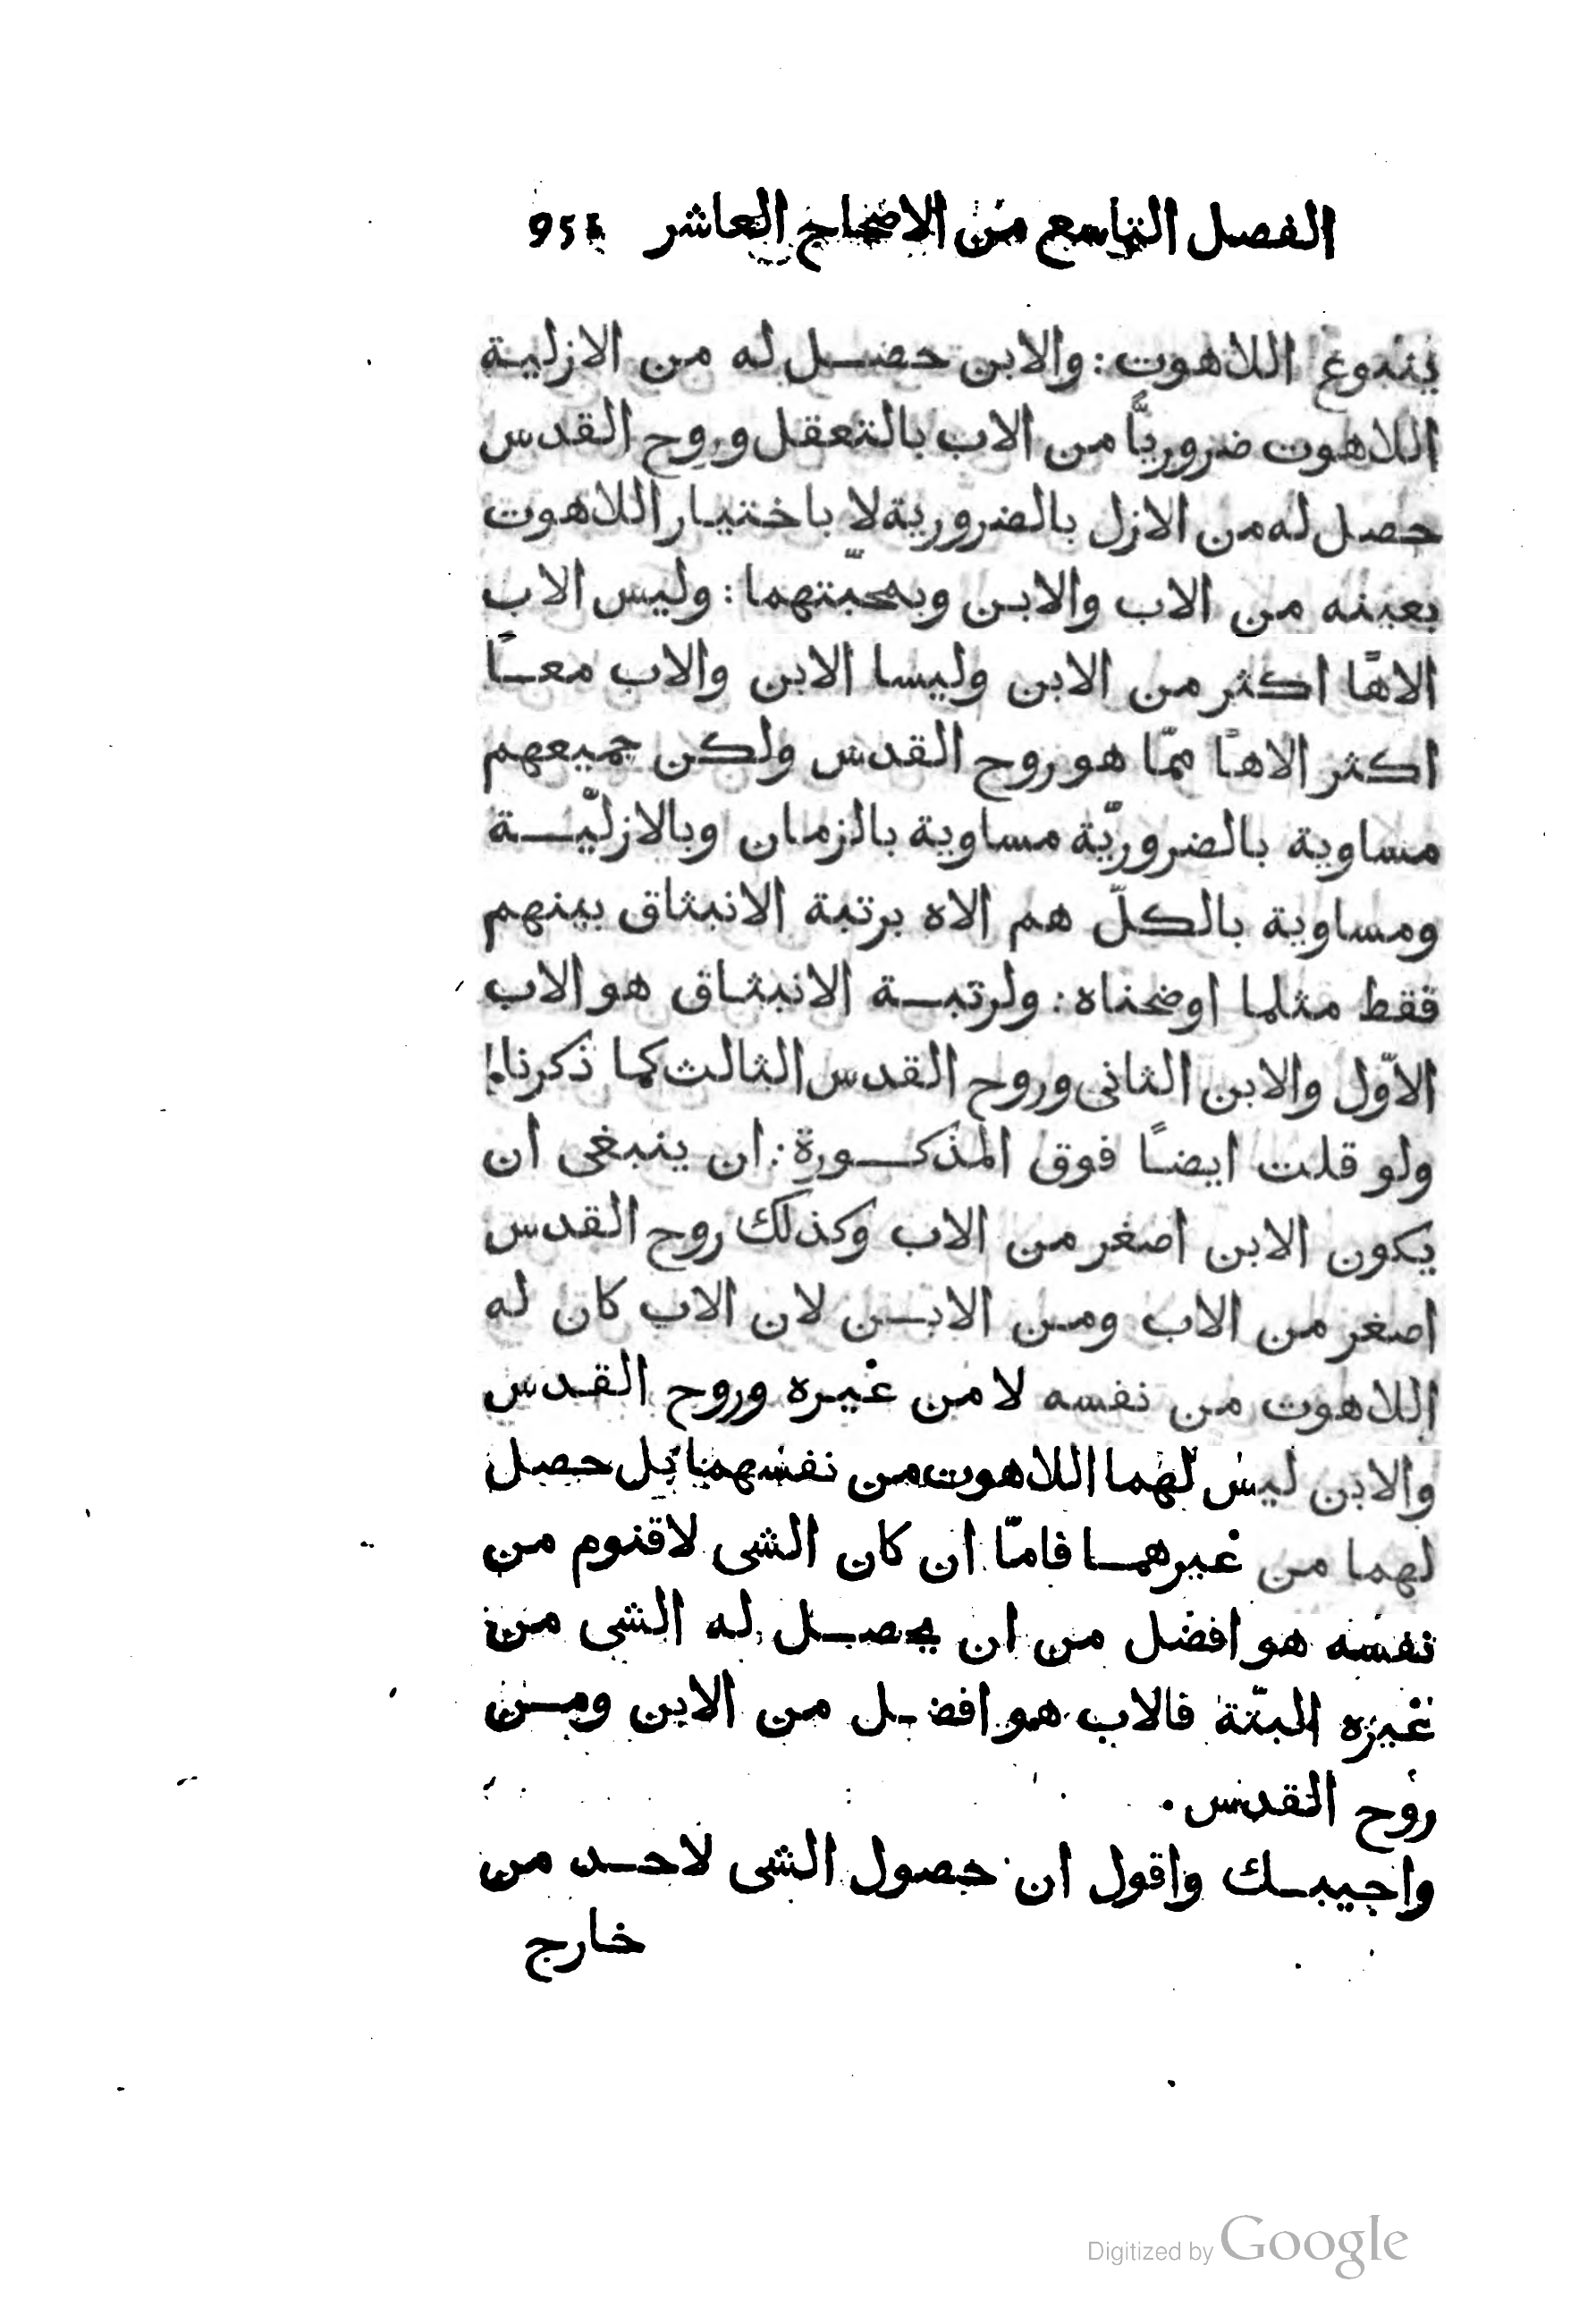 الفصل التاسع من الاصحاح العاشر 951
ينبوع اللاهوت: والابن حصل له من الازلية
اللاهوت ضروريًّا من الاب بالتعقل وروح القدس
حصل له من الازل بالضرورية لا باختيار اللاهوت
بعينه من الاب والابن وبمحبّتهما: وليس الاب
الاهًا اكثر من الابن وليسا الابن والاب معًا
اكثر الاهًا ممّا هو روح القدس ولكن جميعهم
مساوية بالضروريّة مساوية بالزمان وبالازليّة
ومساوية بالكلّ هم الاه برتبة الانبثاق بينهم
فقط مثلما اوضحناه: ولرتبة الانبثاق هو الاب
الاوّل والابن الثانى وروح القدس الثالث كما ذكرنا!
ولو قلت ايضًا فوق المذكورة: ان ينبغى ان
يكون الابن اصغر من الاب وكذلك روح القدس
اصغر من الاب ومن الابن لان الاب كان له
اللاهوت من نفسه لا من غيره وروح القدس
والابن ليس لهما اللاهوت من نفسهما بل حصل
لهما من غيرهما فامّا ان كان الشى لاقنوم من
نفسه هو افضل من ان يحصل له الشى من
غيره البتّة فالاب هو افضل من الابن ومن
روح القدس.
واجيبك واقول ان حصول الشى لاحد من
خارج
Digitized by Google